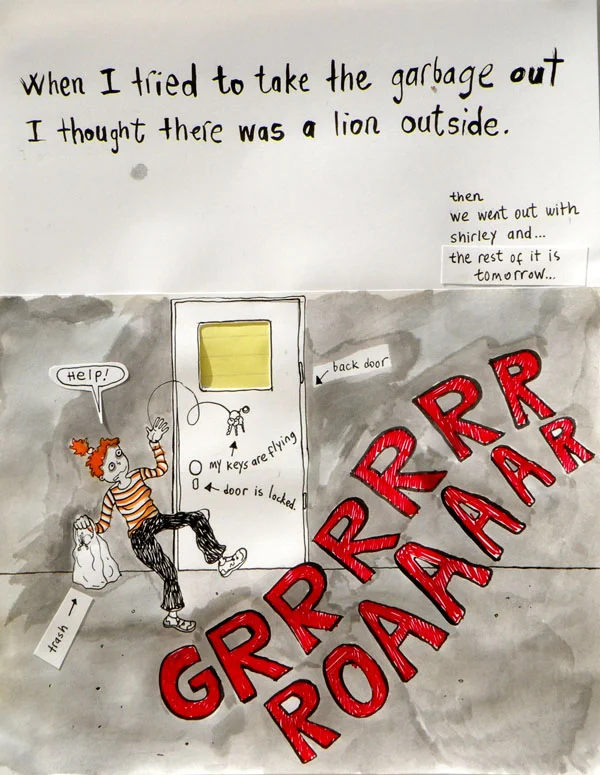 When I tried to take the garbage out
I thought there was a lion outside.
then
we went out with
shirley and...
the rest of it is
tomorrow...
Help!
back door
my keys are flying
door is locked.
trash
GRRRRRRR
ROAAAAAR